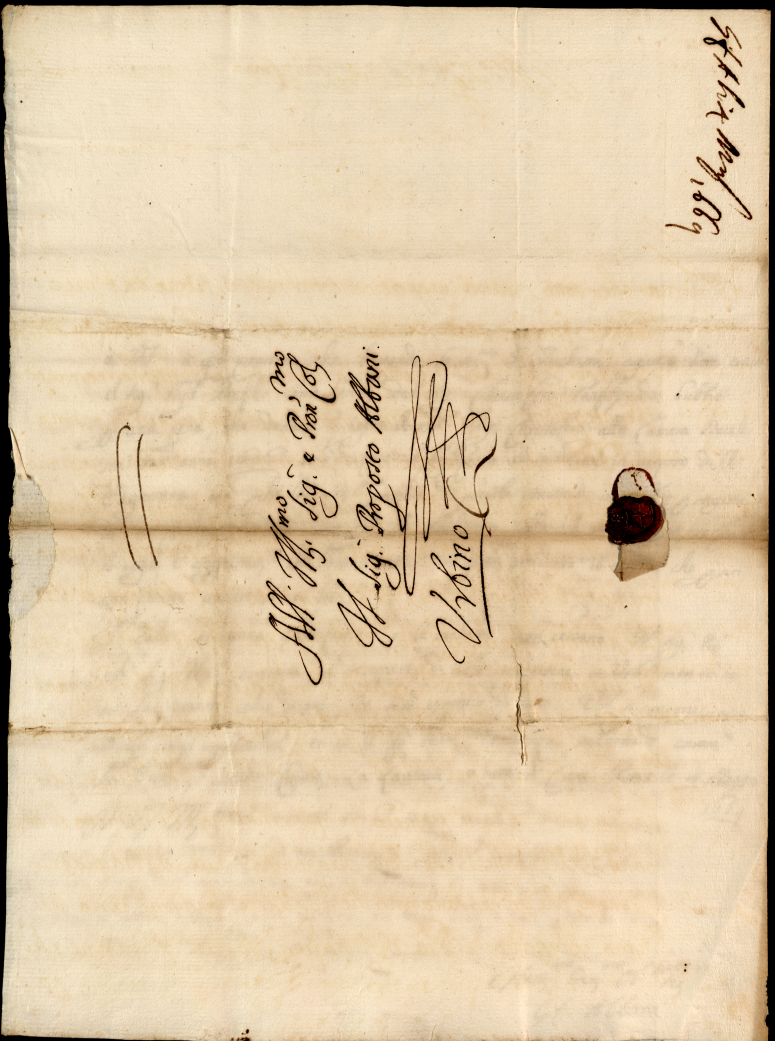 All' Ill.mo Sig.r e Pron' Col.mo
Il Sig.r Proposto Albani.
Urbino
1669